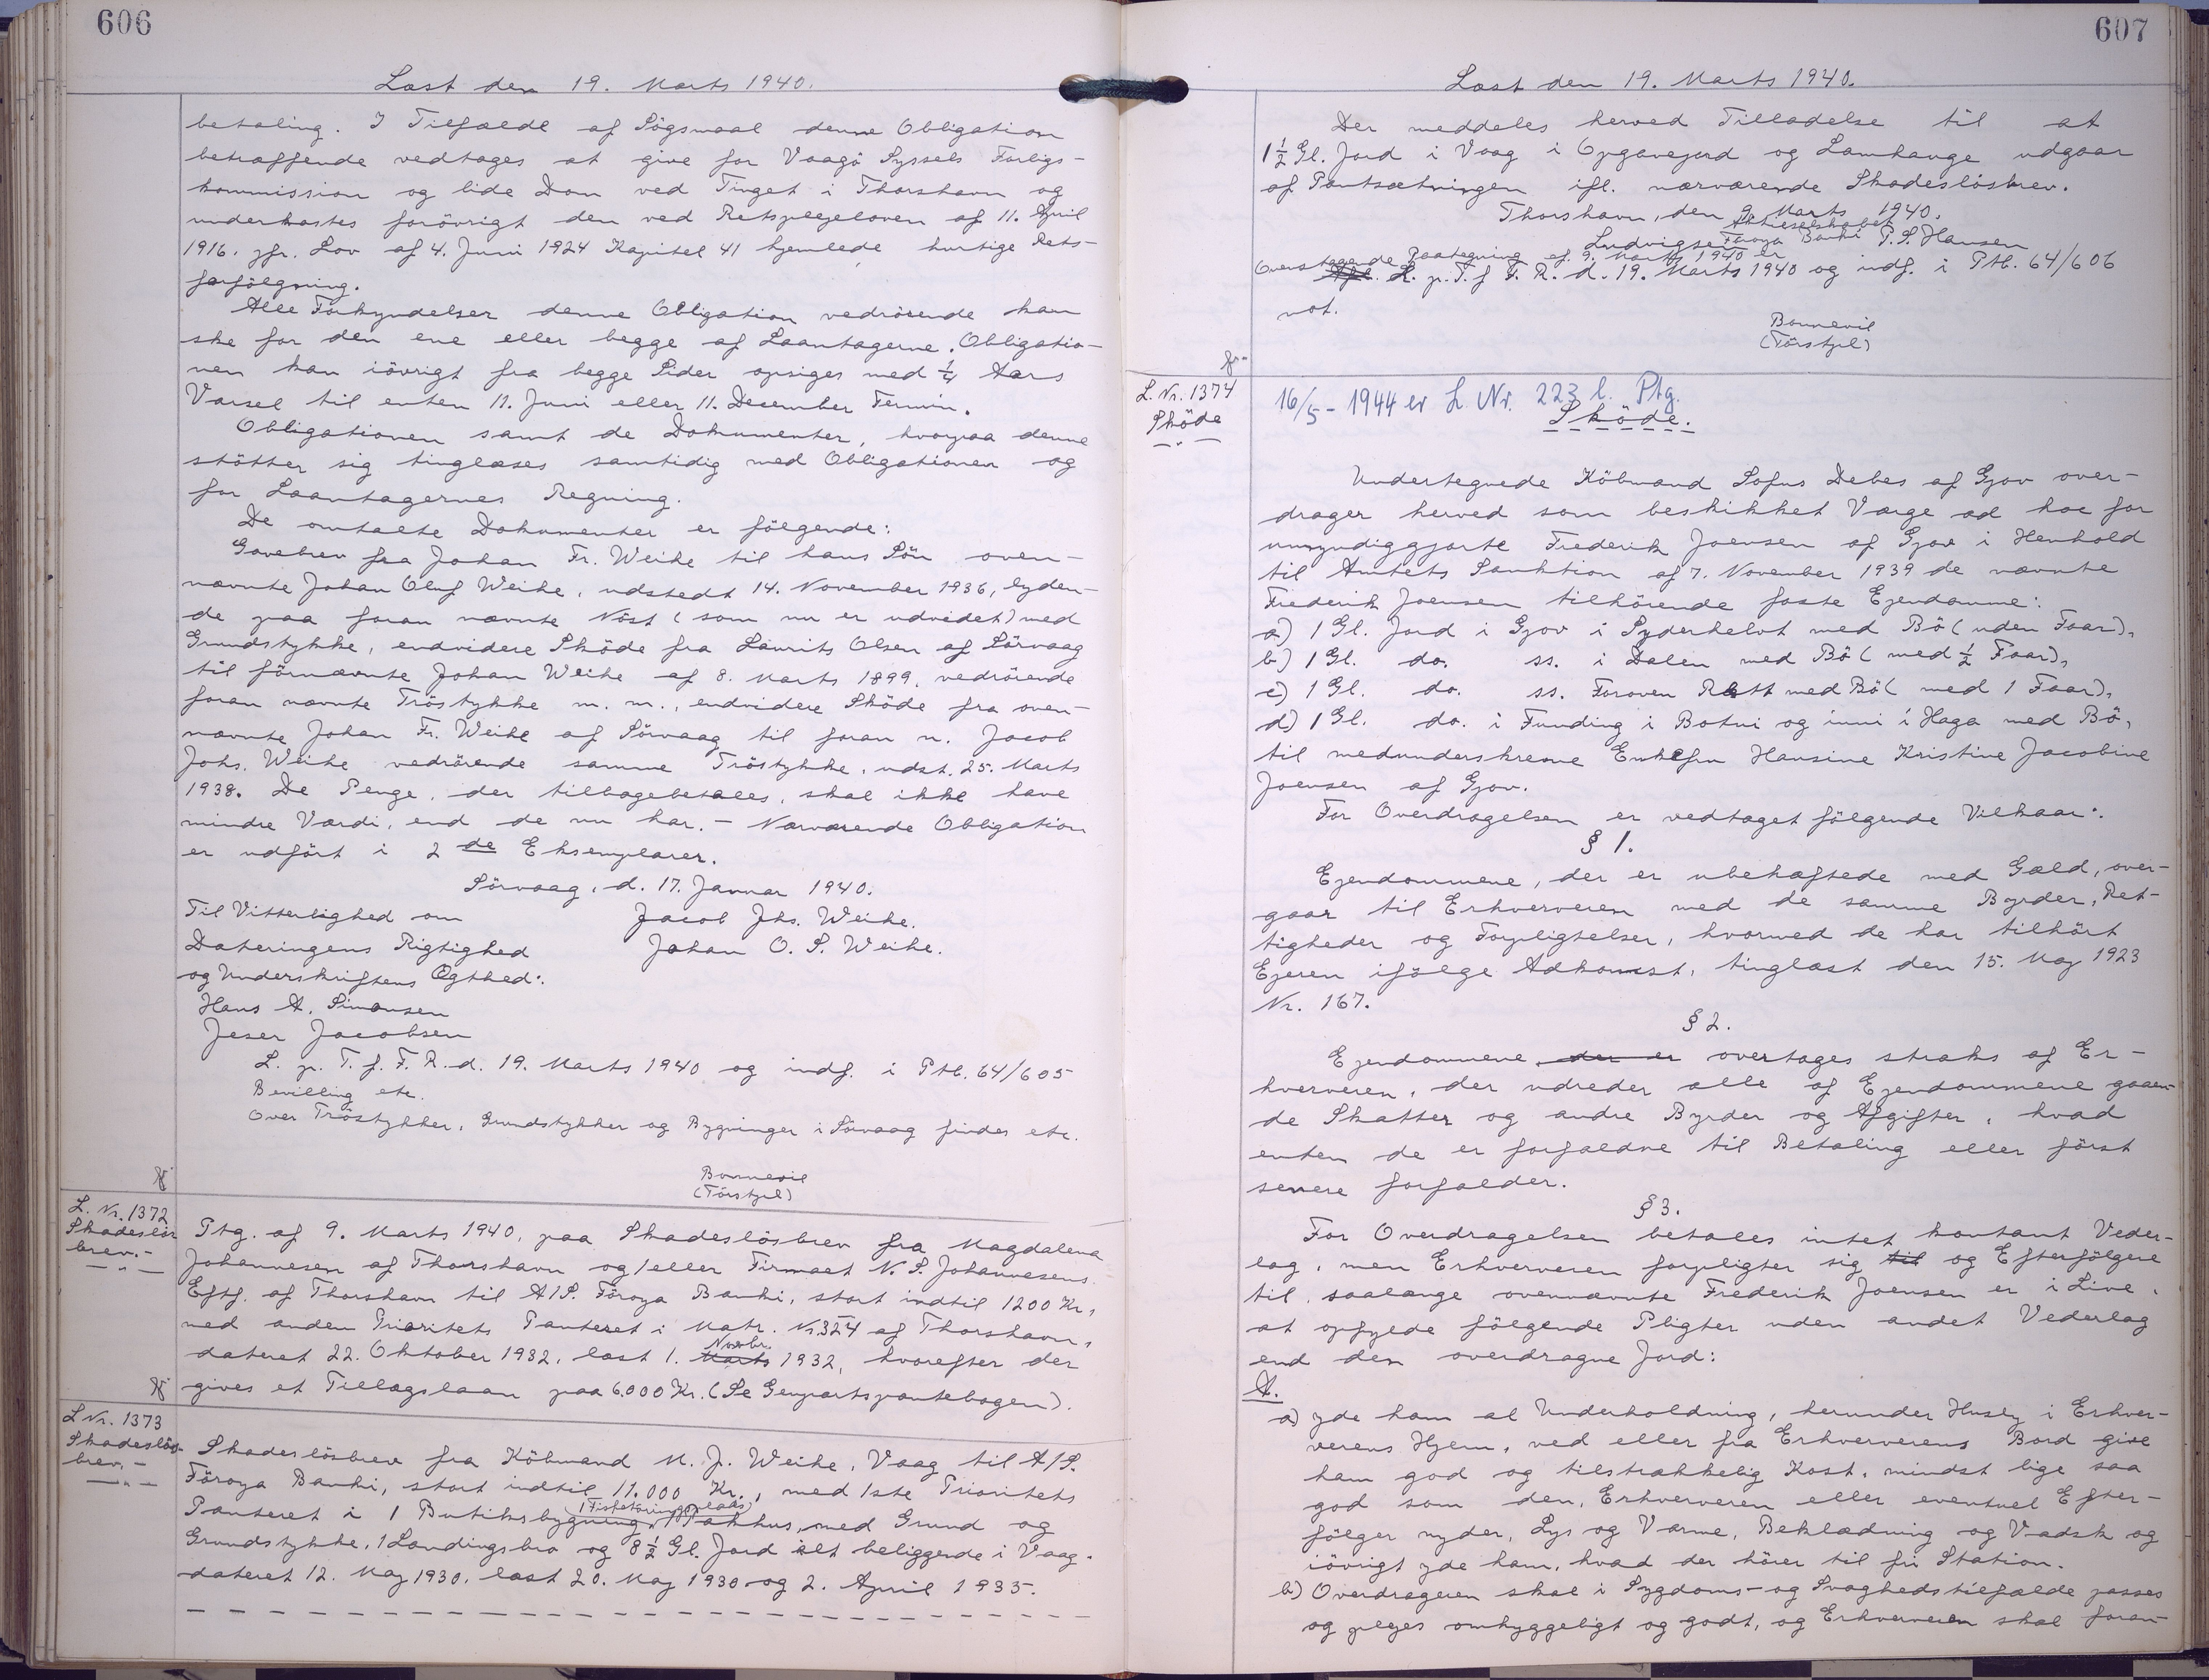 606
Læst den 19. Marts 1940.
betaling. I Tilfælde af Sögsmaal denne Obligation
betræffende vedtages at give for Vaagö Syssels Forligs-
kommission og lide Dom ved Tinget i Thorshavn og
underkastes forövrigt den ved Retsplejeloven af 11. April
1916, jfr. Lov af 4. Juni 1924 Kapitel 41 hjemlede hurtige Rets-
forfölgning.
Alle Forkyndelser denne Obligation vedrörende kan
ske for den ene eller begge af Laantagerne. Obligatio-
nen kan iövrigt fra begge Sider opsiges med 1/4 Aars
Varsel til enten 11. Juni eller 11. December Termin.
Obligationen samt de Dokumenter, hvorpaa denne
stötter sig tinglæses samtidig med Obligationen og
for Laantagernes Regning.
De omtalte Dokumenter er fölgende:
Gavebrev fra Johan Fr. Weihe til hans Sön oven-
nævnte Johan Oluf Weihe, udstedt 14. November 1936, lyden-
de paa foran nævnte Nöst (som nu er udvidet) med
Grundstykke, endvidere Sköde fra Laurits Olsen af Sörvaag
til förnævnte Johan Weihe af 8. Marts 1899, vedrörende
foran nævnte Tröstykke m. m., endvidere Sköde fra oven-
nævnte Johan Fr. Weihe af Sörvaag til foran n. Jacob
Johs. Weihe vedrörende samme Tröstykke, udst. 25. Marts
1938. De Penge, der tilbagebetales, skal ikke have
mindre Værdi, end de nu har. - Nærværende Obligation
er udfört i 2 de Eksemplarer.
Sörvaag, d. 17. Januar 1940.
Til Vitterlighed om Jacob Jhs. Weihe.
Dateringens Rigtighed Johan O. S. Weihe.
og Underskriftens Ægthed:
Hans A. Simonsen
Jeser Jacobsen
L. p. T. f. F. R. d. 19. Marts 1940 og indf. i Ptb. 64/605
Bevilling etc.
Over Tröstykker, Grundstykker og Bygninger i Sörvaag findes etc.
Bonnevie
(Törstjel)
L. Nr. 1372
Skadeslös
brev.-
Ptg. af 9. Marts 1940, paa Skadeslösbrev fra Magdalena
Johannesen af Thorshavn og/eller Firmaet N. P. Johannesens
Eftf. af Thorshavn til A/S. Föroya Banki, stort indtil 1200 Kr,
med anden Prioritets Panteret i Matr. Nr. 324 af Thorshavn,
Novbr.
dateret 22. Oktober 1932, læst 1. Marts 1932, hvorefter der
gives et Tillægslaan paa 6.000 Kr. (Se Genpartspantebogen).
L Nr. 1373
Skadeslös-
brev.-
Skadeslösbrev fra Köbmand M. J. Weihe, Vaag til A/S.
Föroya Banki, stort indtil 11.000 Kr., med 1ste Prioritets
Panteret i 1 Butiksbygning, 1 Pakhus, med Grund og
Grundstykke, 1 Landingsbro og 8 1/2 Gl. Jord alt beliggende i Vaag.
dateret 12. Maj 1930, læst 20. Maj 1930 og 2. April 1935.
607
Læst den 19. Marts 1940.
Der meddeles herved Tilladelse til at
1 1/2 Gl. Jord i Vaag i Opgavejord og Lamhauge udgaar
af Pantsætningen ifl. nærværende Skadeslösbrev.
Thorshavn, den 9. Marts 1940.
Aktieselskabet
Föroya Banki P. S. Hansen
Ovenstaaende Paategning af 9. Marts 1940 er
L. p. T. f. F. R. d. 19. Marts 1940 og indf. i Ptb. 64/606
not.
Bonnevie
(Törstjel)
L. Nr. 1374
Sköde
16/5-1944 er L. Nr. 223 l. Ptg.
Sköde.
Undertegnede Köbmand Sofus Debes af Gjov over-
drager herved som beskikket Værge ad hoc for
umyndiggjorte Frederik Joensen af Gjov i Henhold
til Amtets Sanktion af 7. November 1939 de nævnte
Frederik Joensen tilhörende faste Ejendomme:
a) 1 Gl. Jord i Gjov i Syderhelvt med Bö (uden Faar),
b) 1 Gl. do. ss. i Dalen med Bö (med 1/2 Faar),
c) 1 Gl. do. ss. Foroven Rætt med Bö (med 1 Faar),
d) 1 Gl. do. i Funding i Botni og inni i Haga med Bö,
til medunderskrevne Enkefru Hansine Kristine Jacobine
Joensen af Gjov.
For Overdragelsen er vedtaget fölgende Vilkaar:
§ 1.
Ejendommene, der er ubehæftede med Gæld, over-
gaar til Erhververen med de samme Byrder, Ret-
tigheder og Forpligtelser, hvormed de har tilhört
Ejeren ifölge Adkomst, tinglæst den 15. Maj 1923
Nr. 167.
§ 2.
Ejendommene der er overtages straks af Er-
hververen, der udreder alle af Ejendommene gaaen-
de Skatter og andre Byrder og Afgifter, hvad
enten de er forfaldne til Betaling eller först
senere forfalder.
§ 3.
For Overdragelsen betales intet kontant Veder-
lag, men Erhververen forpligter sig til og Efterfölgere
til, saalænge ovennævnte Frederik Joensen er i Live,
at opfylde fölgende Pligter uden andet Vederlag
end den overdragne Jord:
A.
a) yde ham al Underholdning, herunder Husly i Erhver-
verens Hjem, ved eller fra Erhververens Bord give
ham god og tilstrækkelig Kost, mindst lige saa
god som den, Erhververen eller eventuel Efter-
fölger nyder, Lys og Varme, Beklædning og Vadsk og
iövrigt yde ham, hvad der hörer til fri Station.
b) Overdrageren skal i Sygdoms- og Svaghedstilfælde passes
og plejes omhyggeligt og godt, og Erhververen skal foran-